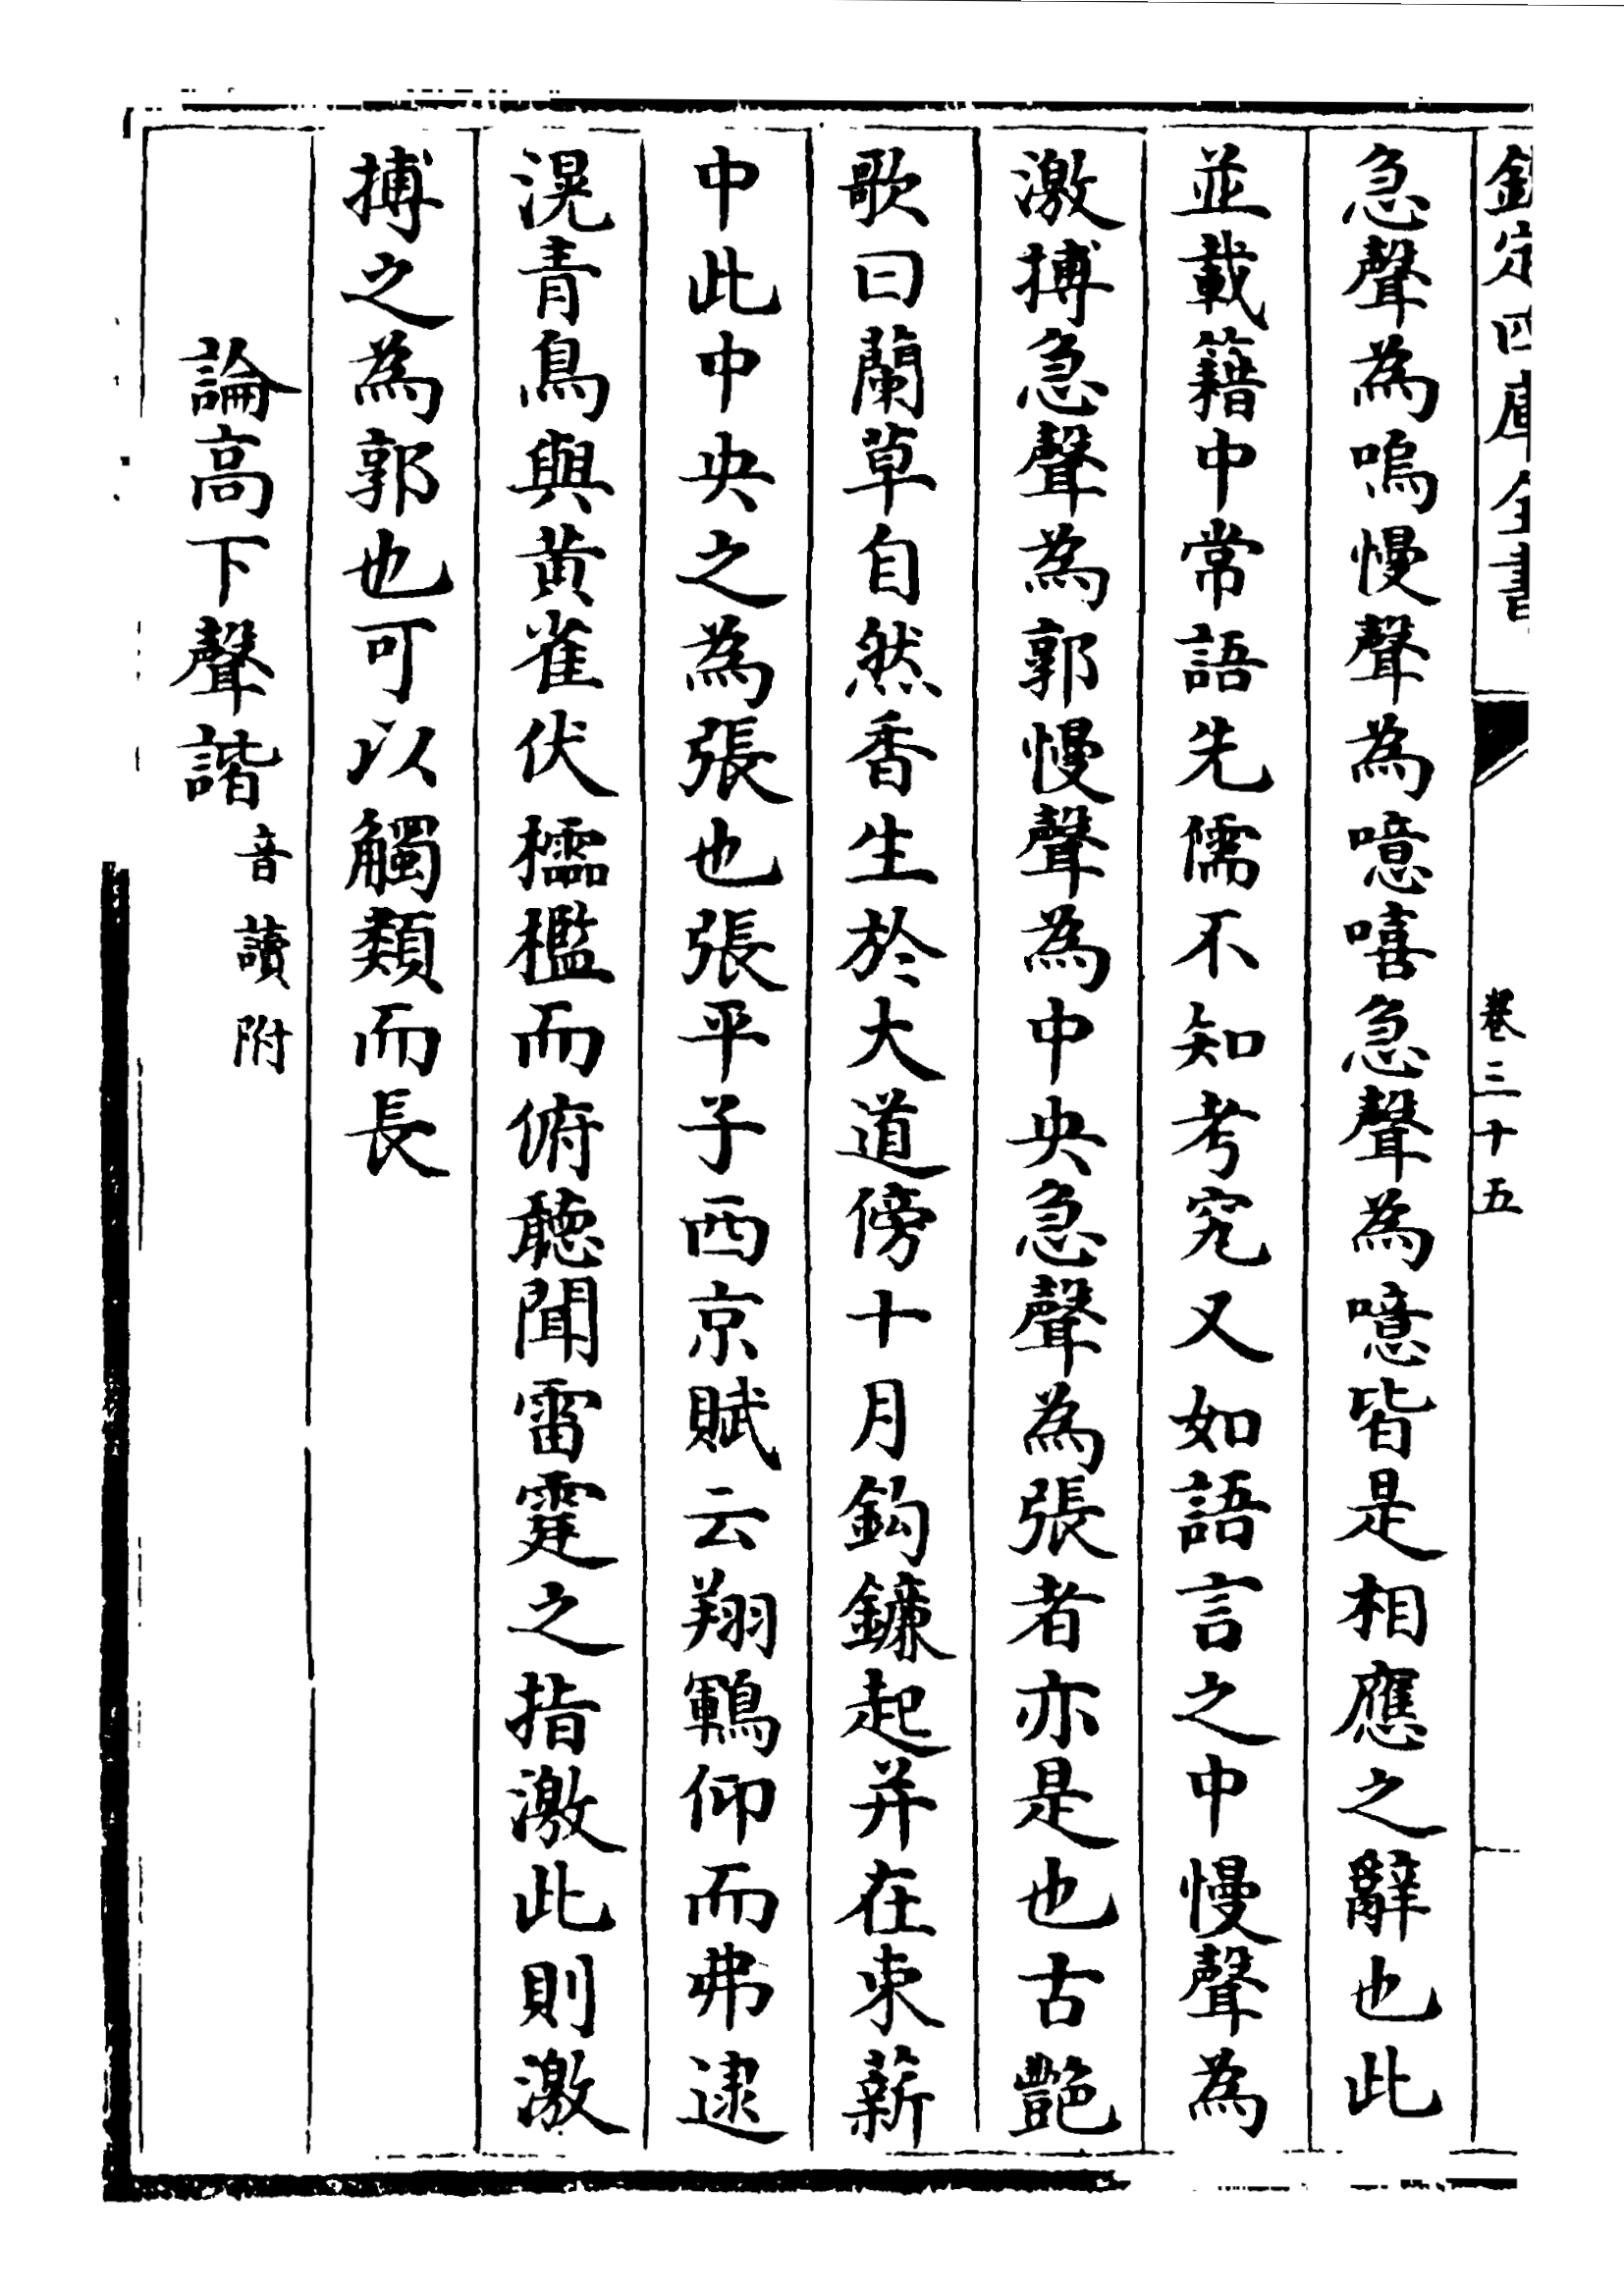 欽定四庫全書
卷三十五
急聲為嗚慢聲為噫嘻急聲為噫皆是相應之辭也此
並載籍中常語先儒不知考究又如語言之中慢聲為
激搏急聲為郭慢聲為中央急聲為張者亦是也古艶
歌曰蘭草自然香生於大道傍十月鈎鐮起并在束薪
中此中央之為張也張平子西京賦云翔鶤仰而弗逮
滉青鳥與黄雀伏櫺檻而俯聽聞雷霆之指激此則激
搏之為郭也可以觸類而長
論高下聲諧音讀附